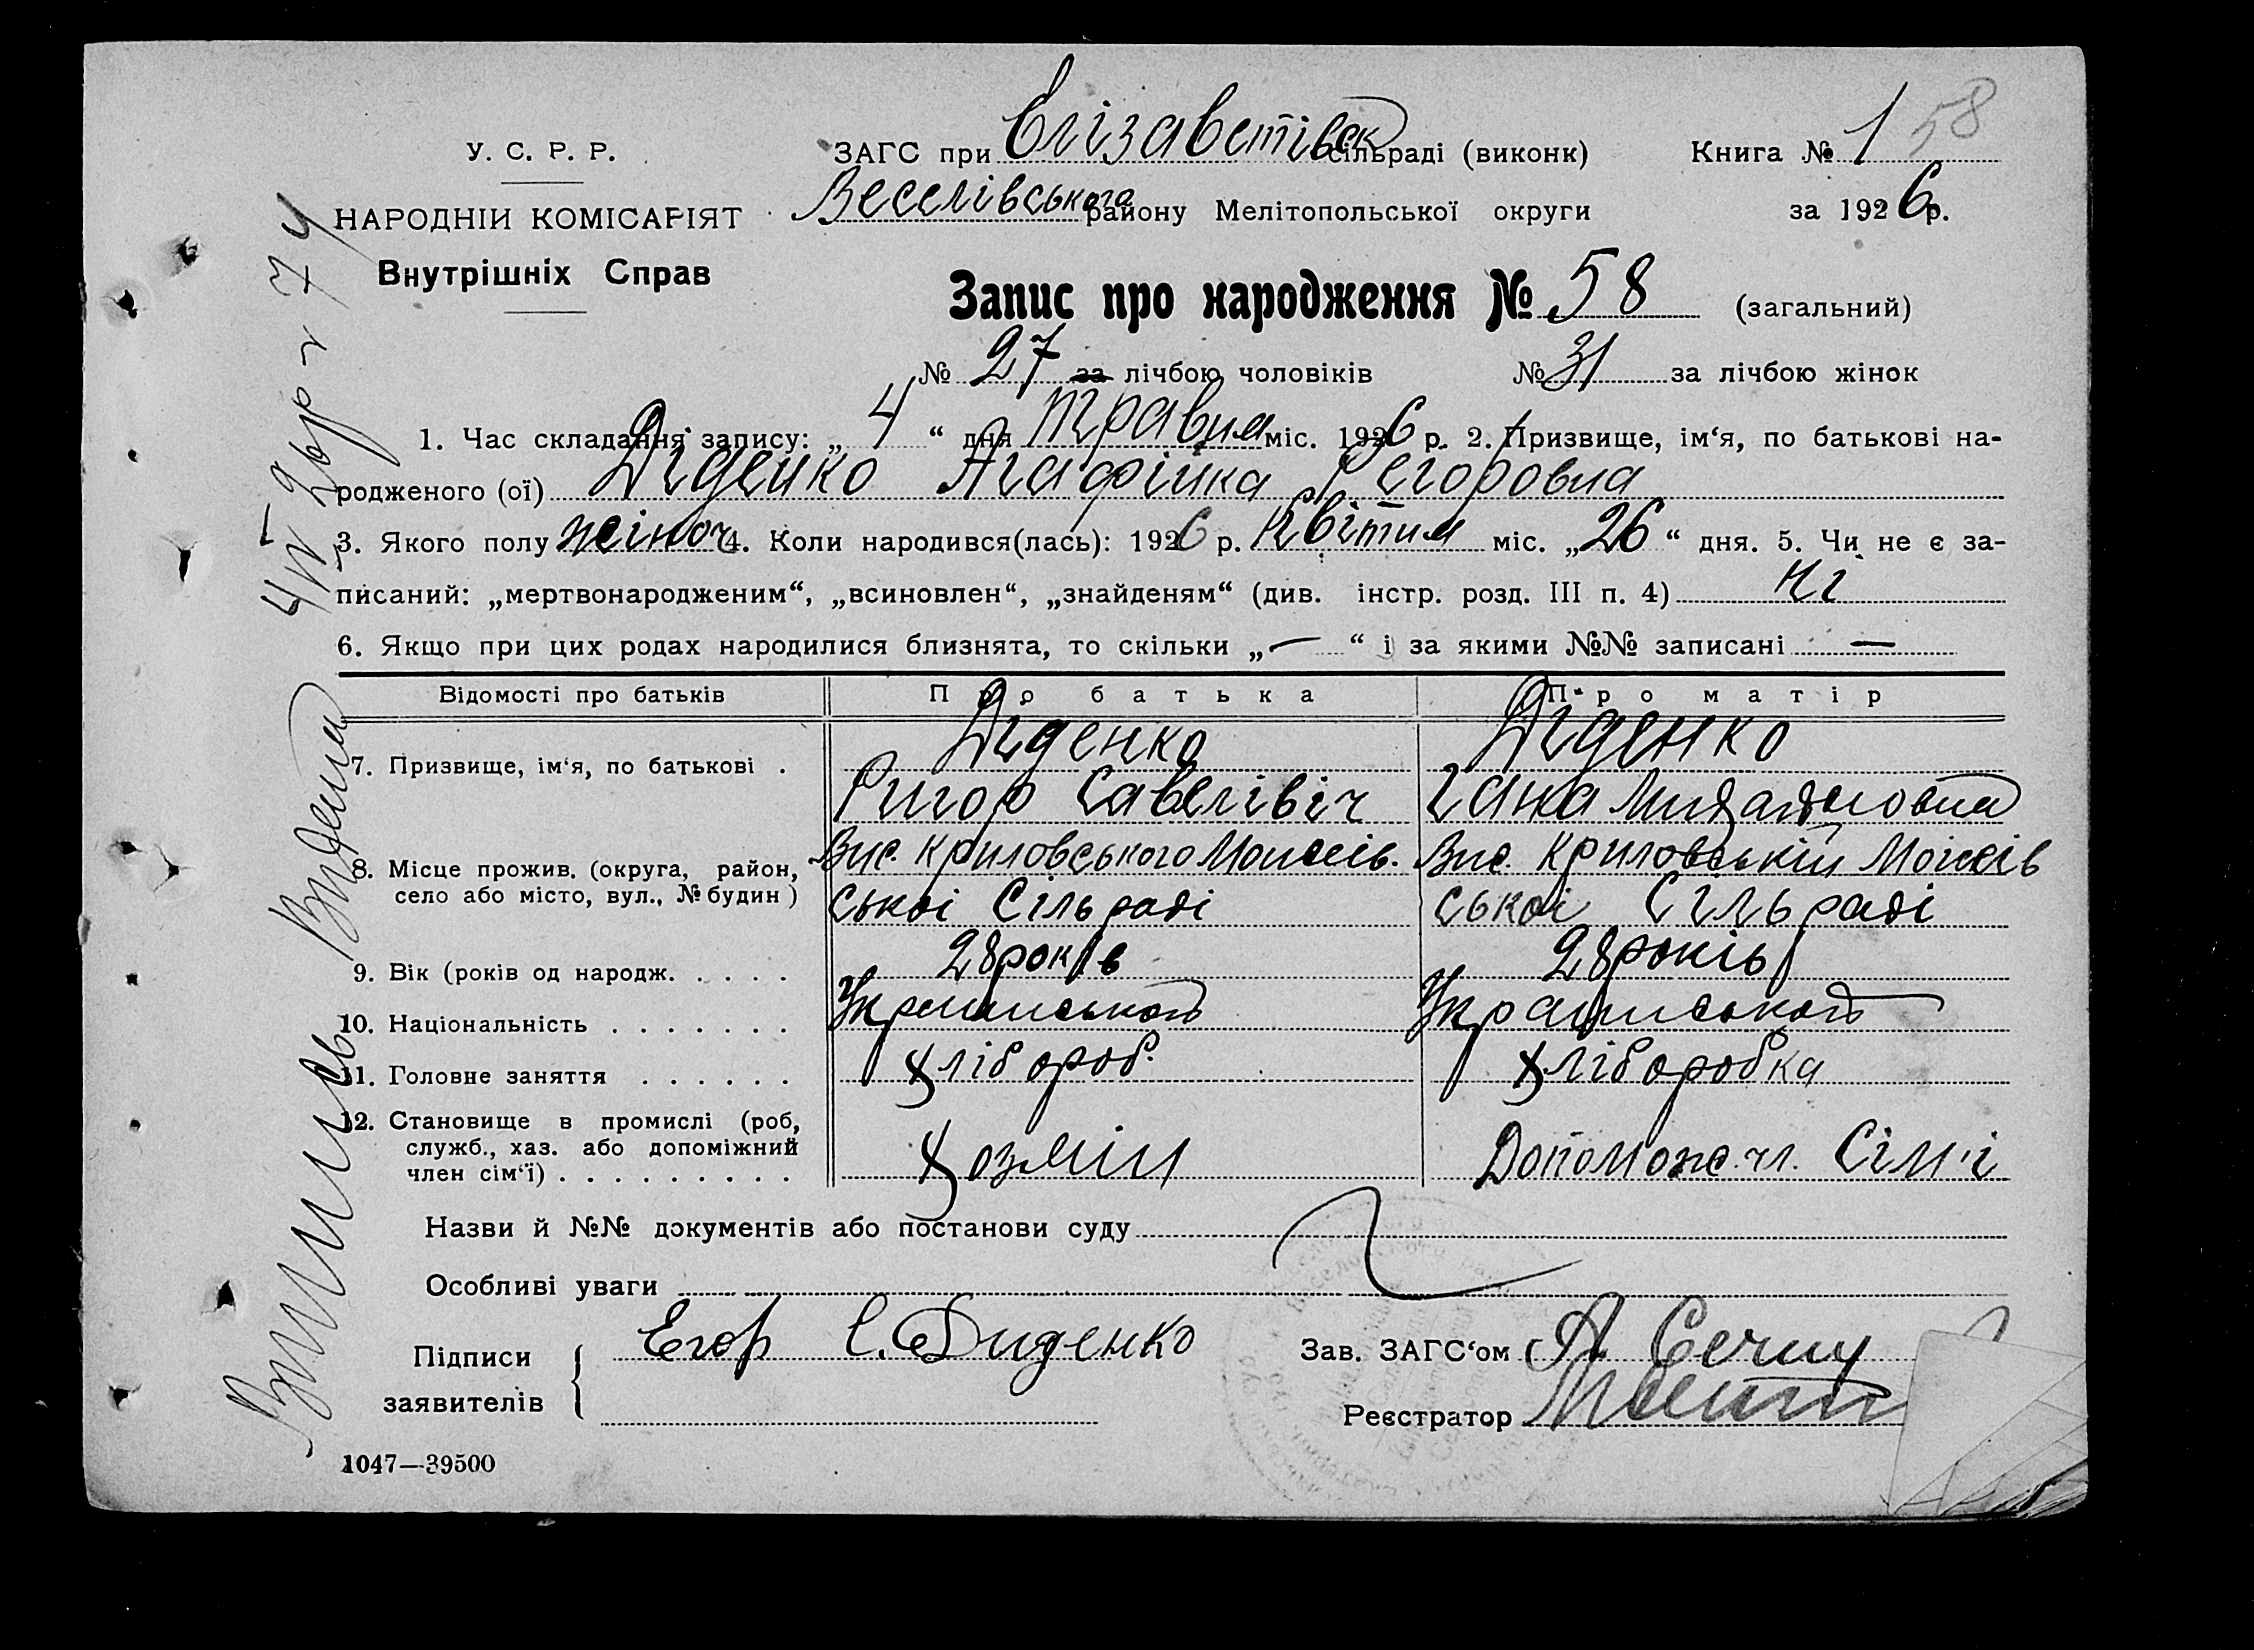 У. С. Р. Р.
НАРОДНІЙ КОМІСАРІЯТ
Внутрішніх Справ
ЗАГС при Єлізаветівск сільраді (виконк)
Веселівського району Мелітопольської округи
Книга № 1 58
за 1926 р.
Запис про народження № 58 (загальний)
№ 27 за лічбою чоловіків № 31 за лічбою жінок
1. Час складання запису: „ 4 “ дня Травня міс. 1926 р. 2. Призвище, ім‘я, по батькові на-
родженого (ої) Діденко Агафійка Регоровна
3. Якого полу жіноч 4. Коли народився(лась): 1926 р. Квітня міс. „26“ дня. 5. Чи не є за-
писаний: „мертвонародженим“, „всиновлен“, „знайденям“ (див. інстр. розд. III п. 4) ні
6. Якщо при цих родах народилися близнята, то скільки „—“ і за якими №№ записані —
Відомості про батьків Про батька Про матір
7. Призвище, ім‘я, по батькові . Діденко Діденко
Ригор Савелівіч Гана
8. Місце прожив. (округа, район, Вис. Криловського Моисеів. Вис. Криловській Моисеів
село або місто, вул., № будин ) ськоі Сільраді ськоі Сільраді
9. Вік (років од народж. . . . . 28 років 28 років
10. Національність . . . . . . . Українськой Українськой
11. Головне заняття . . . . . . хлібороб. хліборобка
12. Становище в промислі (роб,
служб., хаз. або допоміжний
член сім‘ї) . . . . . . . . . Хозяін Допоможе. чл. Сім'і
Назви й №№ документів або постанови суду
Особливі уваги
Підписи
заявителів
Егор С. Диденко
Зав. ЗАГС‘ом
Реєстратор
1047—39500
Выпись Выдана